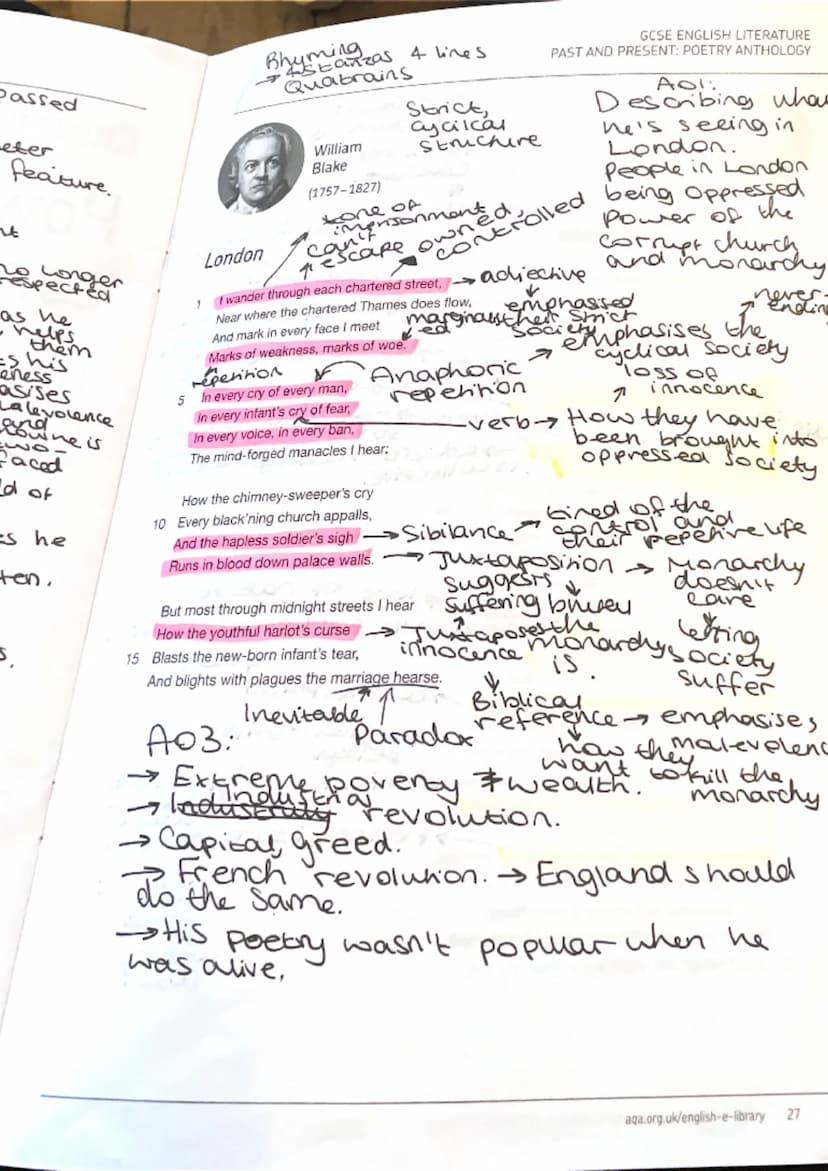 GCSE ENGLISH LITERATURE
PAST AND PRESENT: POETRY ANTHOLOGY
Rhyming
→ 4 stanzas 4 lines
Quatrains
Strict,
cyclical
structure
AO1:
Describing what
he's seeing in
London.
People in London
being oppressed
power of the
corrupt church
and monarchy
William
Blake
(1757–1827)
tone of
imprisonment
can't
escape
owned,
controlled
London
1 I wander through each chartered street,
→ adjective
Near where the chartered Thames does flow,
And mark in every face I meet
Marks of weakness, marks of woe.
emphasised
their strict
society
marginalis
ed
emphasises the
cyclical society
never-
ending
loss of
innocence
repetition
Anaphoric
repetition
5 In every cry of every man,
In every infant's cry of fear,
In every voice, in every ban,
The mind-forged manacles I hear:
verb → How they have
been brought into
oppressed society
How the chimney-sweeper's cry
10 Every black'ning church appalls,
And the hapless soldier's sigh
Runs in blood down palace walls.
→ Sibilance →
tired of the
control and
their repetive life
→ Juxtaposition → Monarchy
doesn't
care
suggests
suffering
letting
society
suffer
But most through midnight streets I hear
How the youthful harlot's curse
15 Blasts the new-born infant's tear,
And blights with plagues the marriage hearse.
→ Juxtaposes the
innocence
monarchy
is.
Inevitable
Paradox
Biblical
reference → emphasises
how they
want to kill the
monarchy
AO3:
→ Extreme poverty ≠ wealth.
→ Industrial revolution.
→ Capital greed.
→ French revolution. → England should
do the same.
→ His poetry wasn't popular when he
was alive,
aqa.org.uk/english-e-library 27
passed
feature.
no longer
respected
as he
helps
them
s his
asises
malevolence
and
two-
faced
d of
s he
ten.